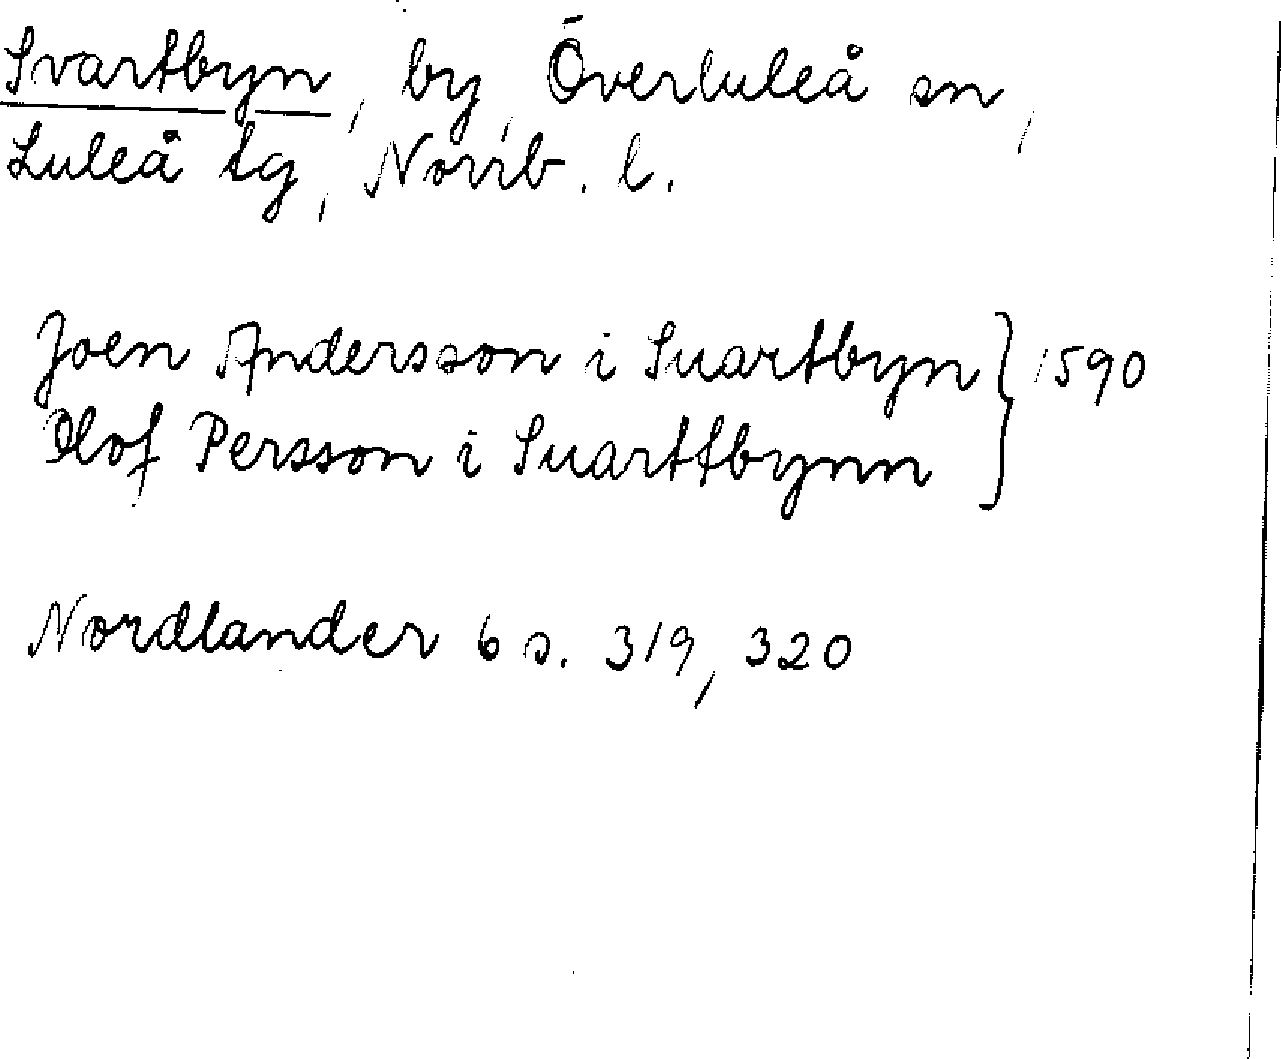 Svartbyn, by, Överluleå sn,
Luleå tg, Norrb. l.
Joen Andersson i Suartbyn } 1590
Olof Persson i Suarttbynn
Nordlander 6 s. 319, 320